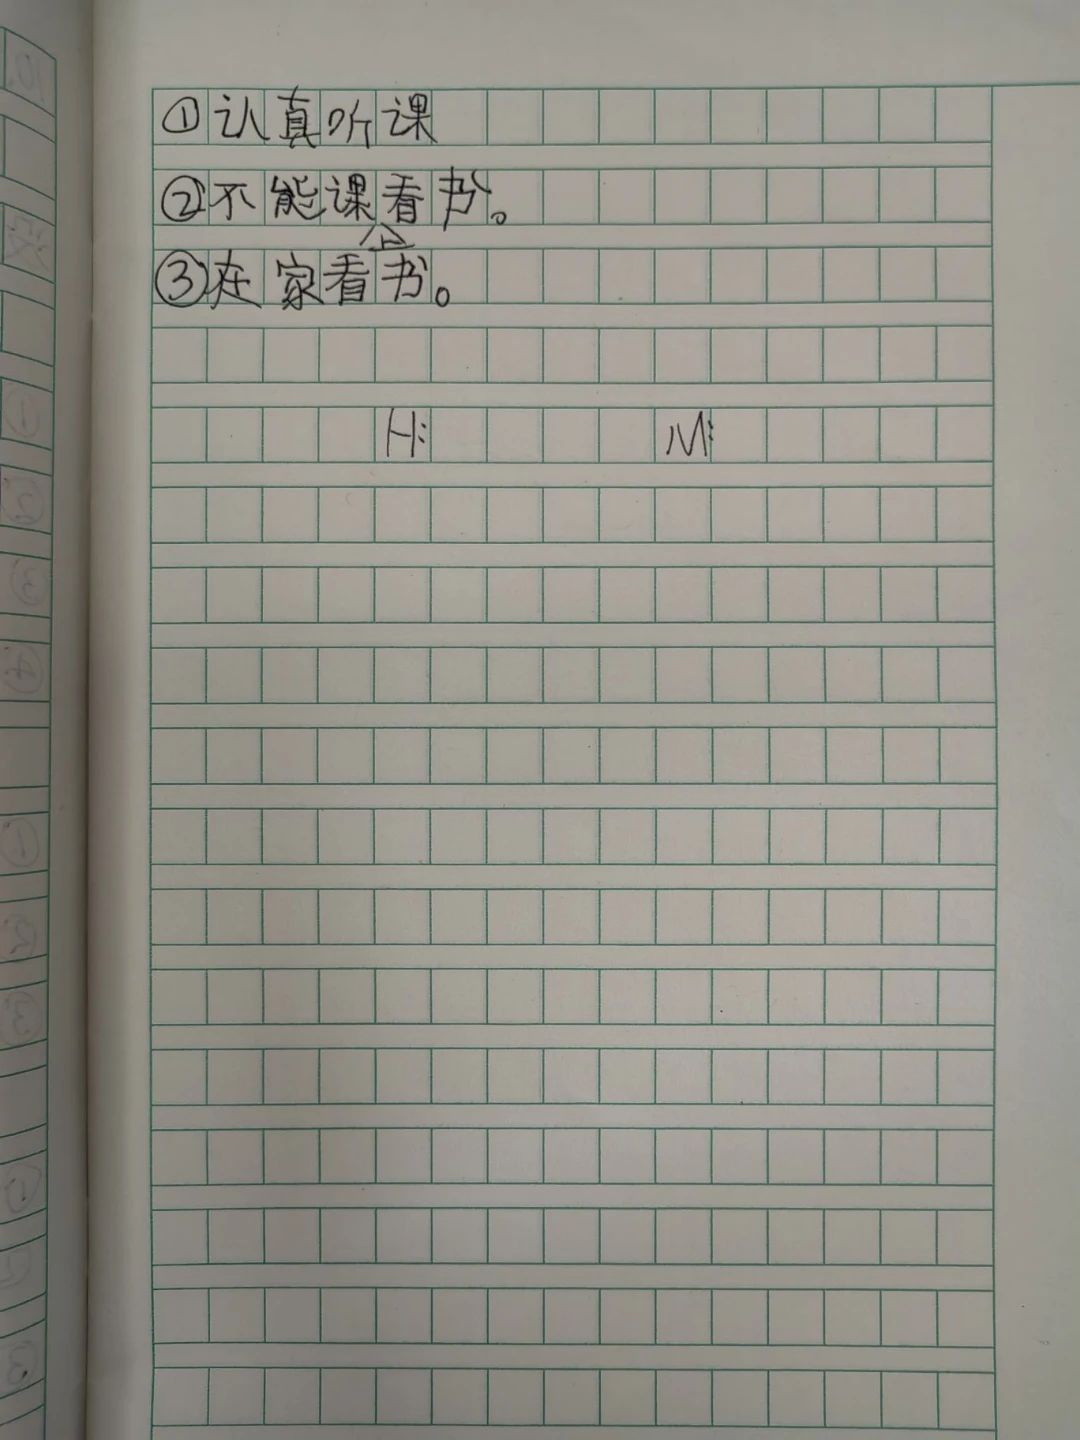 ①认真听课
②不能课上看书。
③在家看书。
H: M: